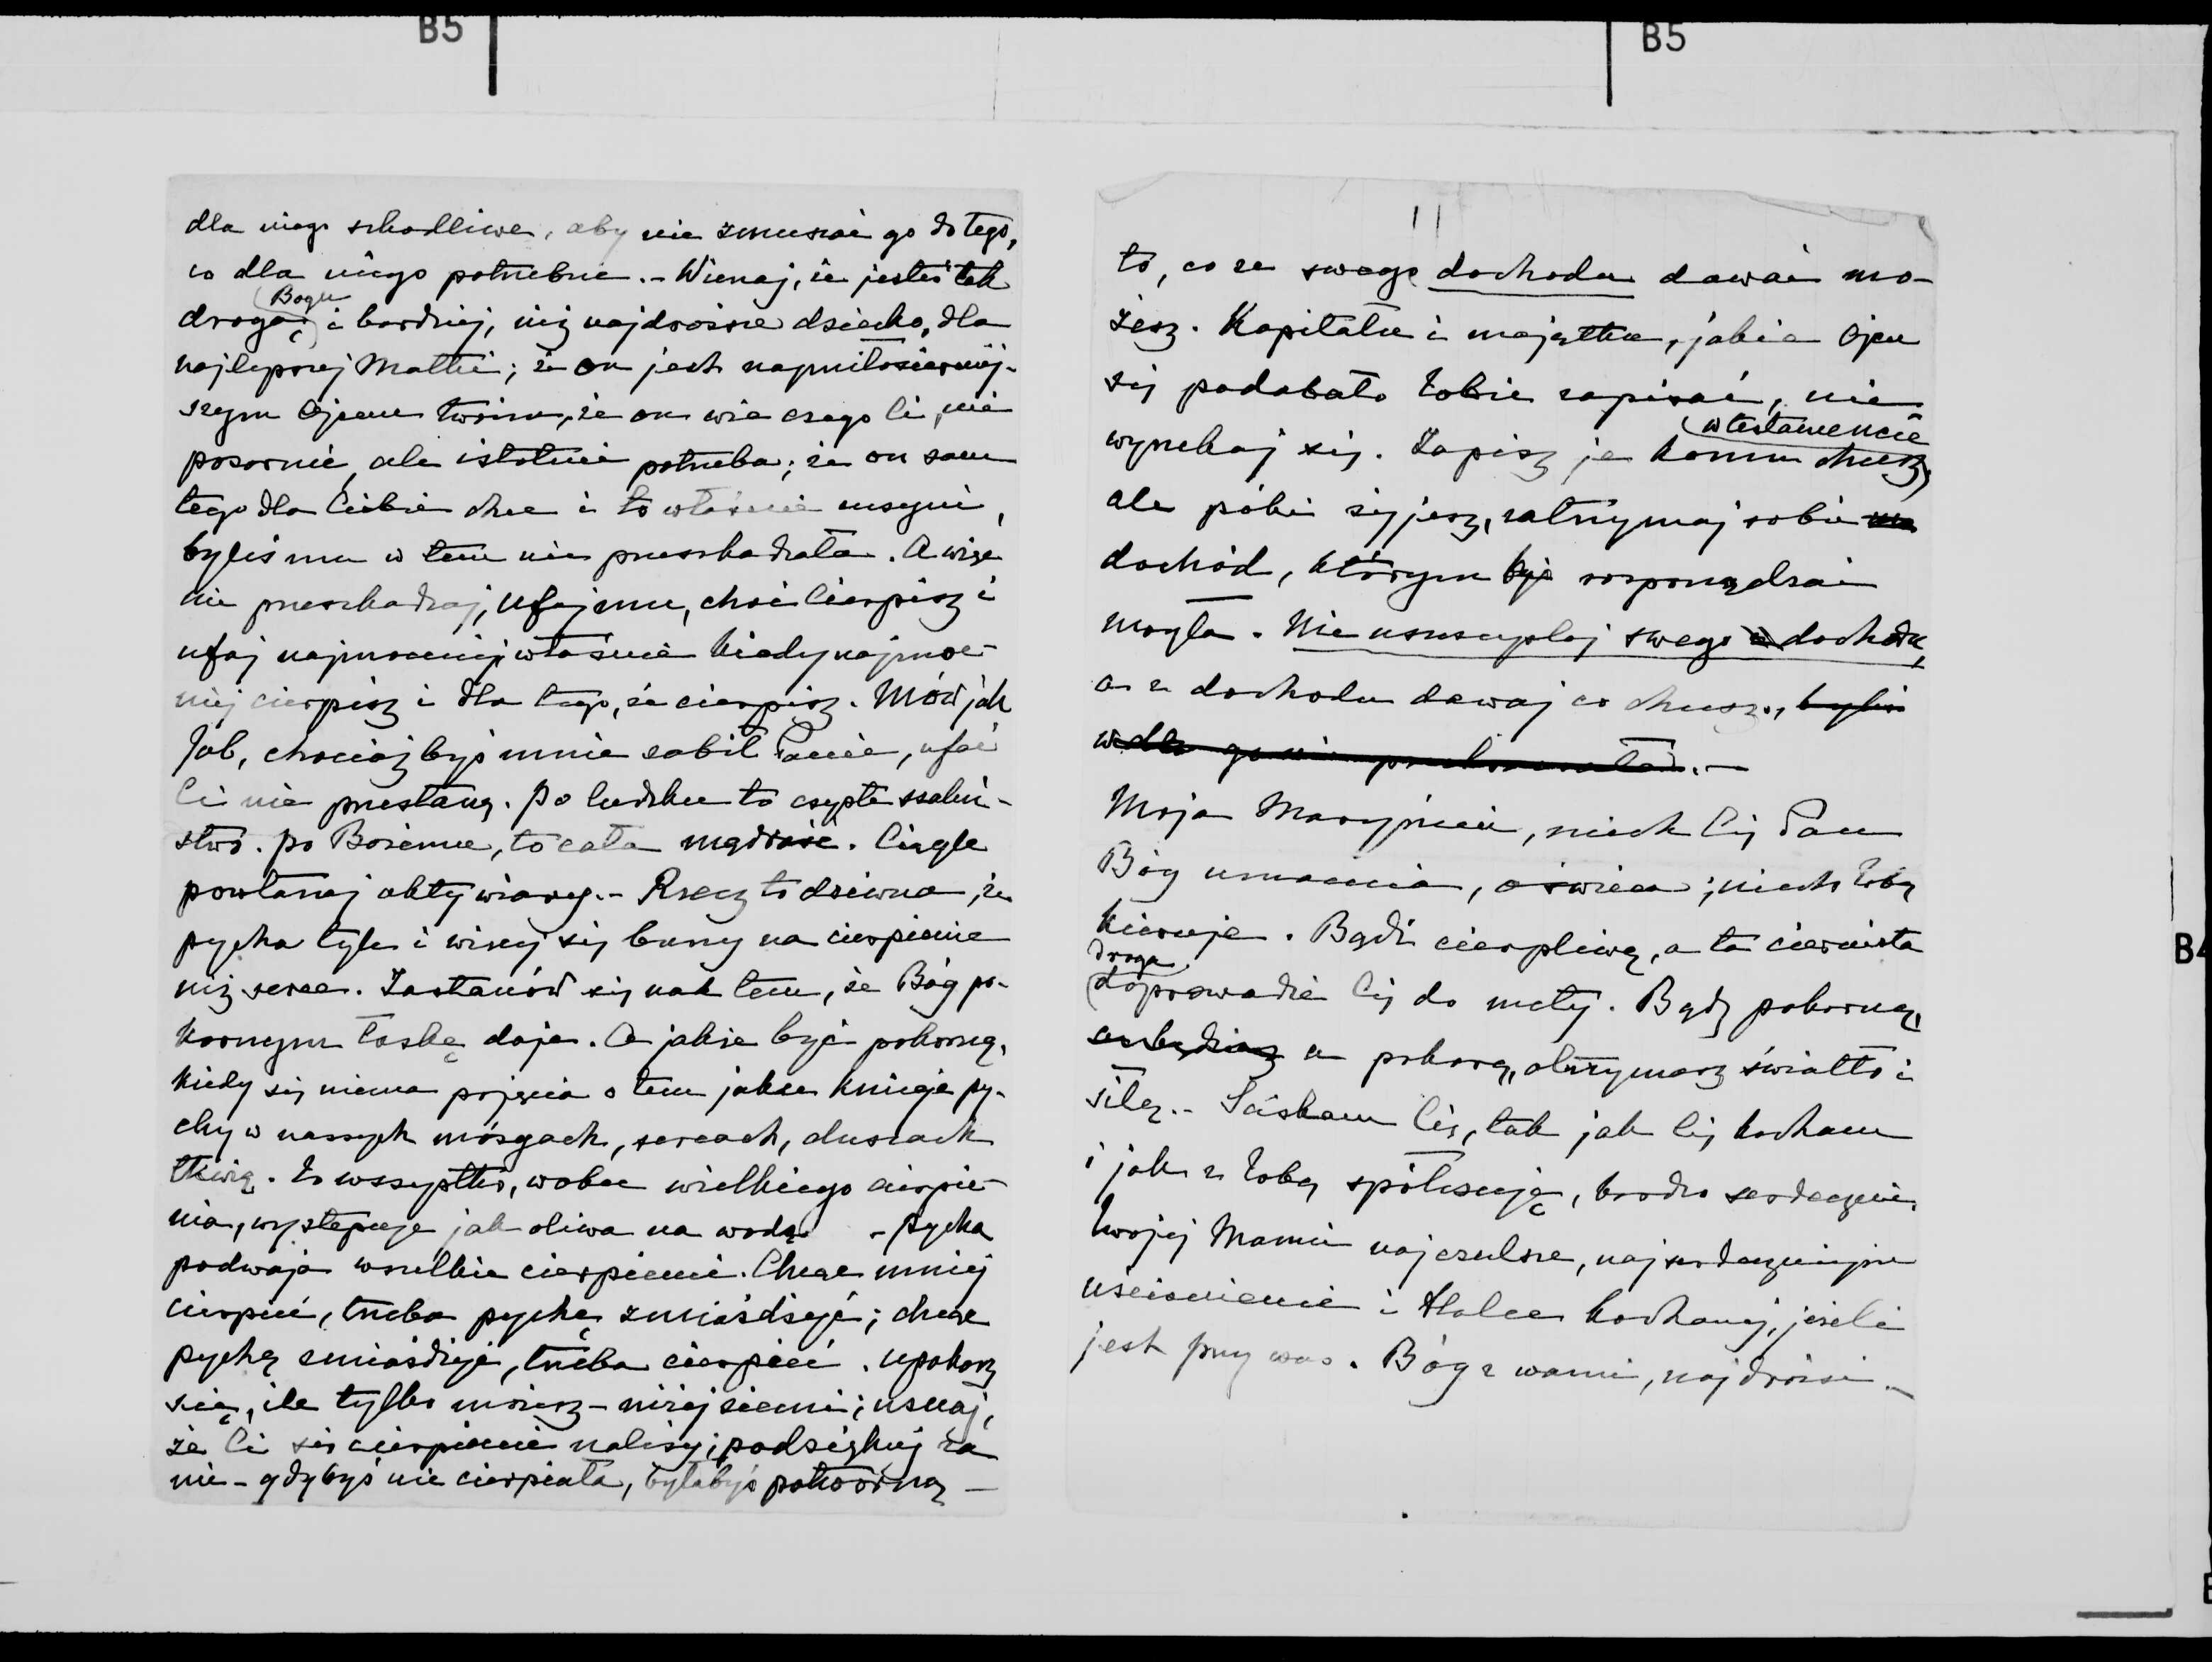 B5
B5
dla niego szkodliwe, aby nie zmuszać go do tego,
co dla niego potrzebne. - Wierzaj, że jesteś tak
Bogu
drogą, i bardziej, niż najdroższe dziecko, dla
najlepszej Matki; że on jest najmiłosierniej-
szym Ojcem twoim, że on wie czego Ci, nie
pozornie, ale istotnie potrzeba; że on sam
tego dla Ciebie chce i to właśnie uczyni,
byleś mu w tem nie przeszkadzała. A więc
nie przeszkadzaj, ufaj mu, choć cierpisz i
ufaj najmocniej właśnie kiedy najmoc-
niej cierpisz i dla tego, że cierpisz. Mów jak
Job, chociażbyś mnie zabił Panie, ufać
Ci nie przestanę. Po ludzku to czyste szaleń-
stwo. po Bożemu, to cała mądrość. Ciągle
powtarzaj akty wiary. - Rzecz to dziwna, że
pycha tyle i więcej się burzy na cierpienie
niż serce. Zastanów się nad tem, że Bóg po-
kornym łaskę daje. A jakże być pokorną,
kiedy się niema pojęcia o tem jakie knieje py-
chy w naszych mózgach, sercach, duszach
tkwią. To wszystko, wobec wielkiego cierpie-
nia, występuje jak oliwa na wodę - pycha
podwaja wszelkie cierpienie. Chcąc mniej
cierpieć, trzeba pychę zmiażdżyć; chcąc
pychę zmiażdżyć, trzeba cierpieć. upokorz
się, ile tylko możesz - niżej ziemi; uznaj,
że Ci się cierpienie należy; podziękuj za
nie - gdybyś nie cierpiała, byłabyś potworną -
11
to, co ze swego dochodu dawać mo-
żesz. Kapitału i majątku, jakie Ojcu
się podobało Tobie zapisać, nie
w testamencie
wyrzekaj się. Zapisz je komu chcesz,
ale póki żyjesz, zatrzymaj sobie
dochód, którym byś rozporządzać
mogła. Nie uszczuplaj swego dochodu,
a z dochodu dawaj co chcesz., byleś
Moja Maryniu, niech Cię Pan
Bóg umacnia, oświeca; niech Tobą
kieruje. Bądź cierpliwą, a ta ciernista
droga
doprowadzi Cię do mety. Bądź pokorną,
a pokorą, otrzymasz światło i
siłę. - Ściskam Cię, tak jak Cię kocham
i jak z Tobą spółczuję, bardzo serdecznie.
Twojej Mamie najczulsze, najserdeczniejsze
uściśnienie i Halce kochanej, jeżeli
jest przy was. Bóg z wami, najdrożsi. -
B4